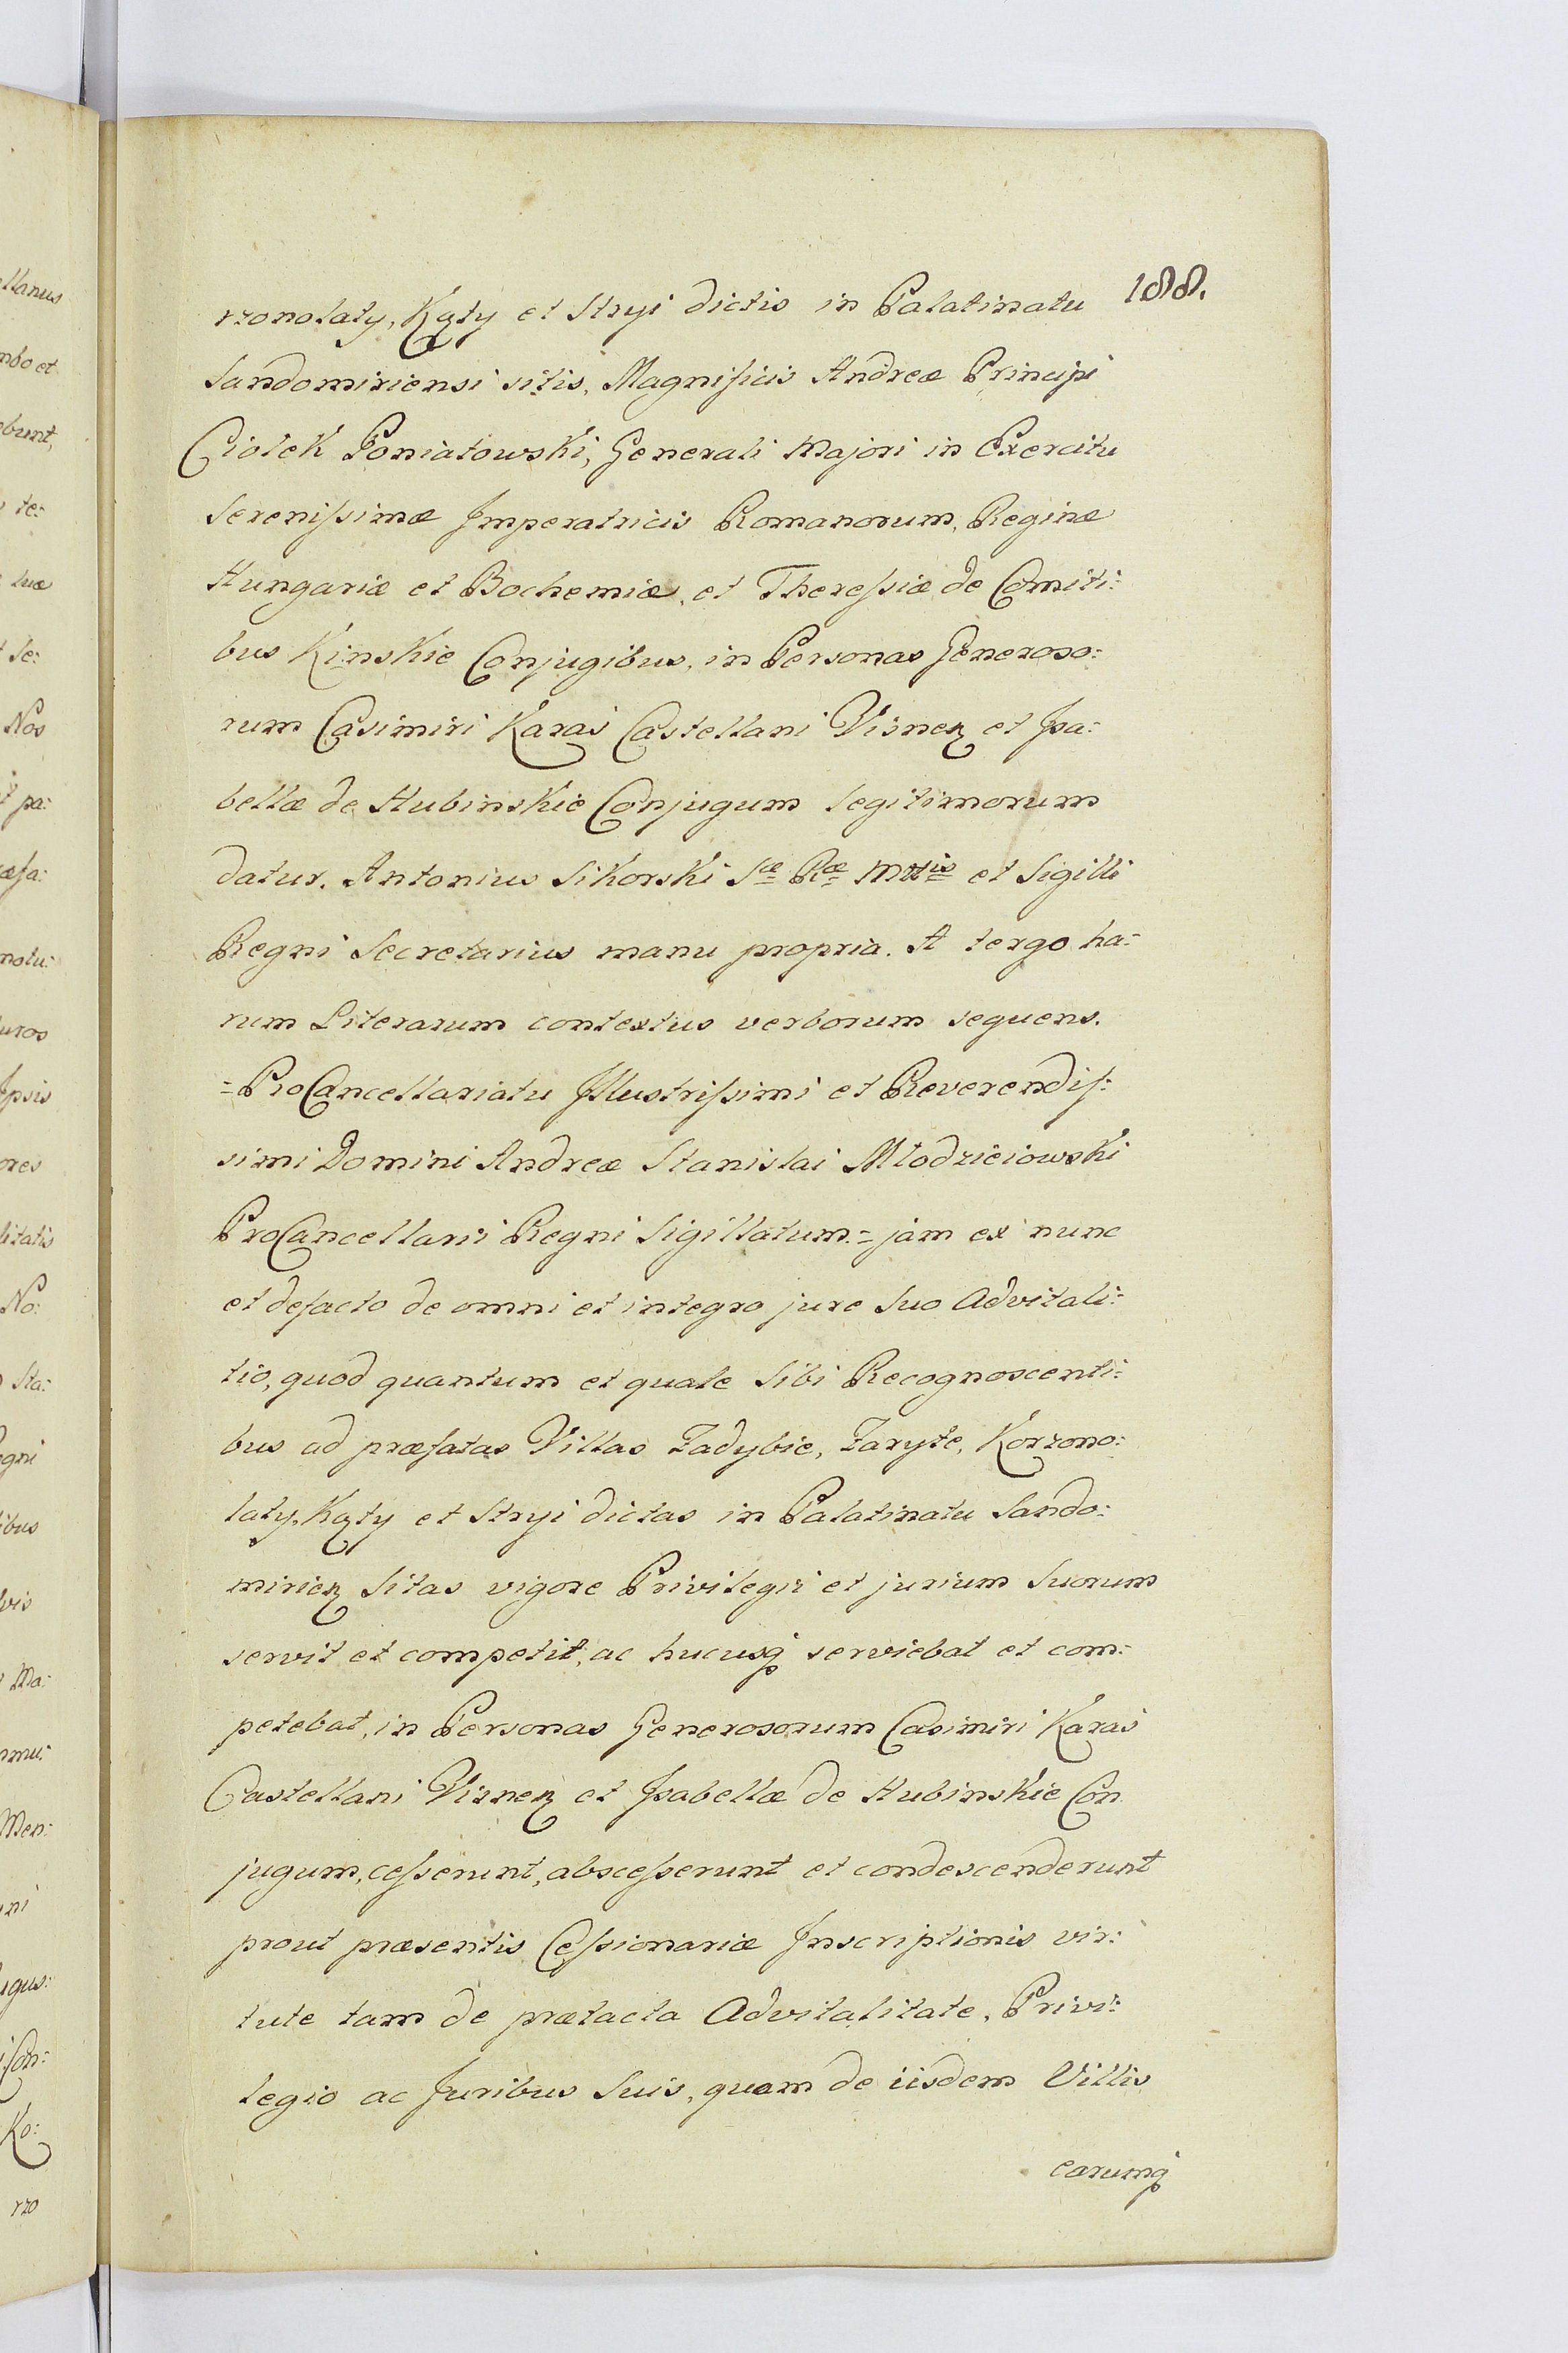 188.
rzonolaty, Kąty et Stryi dictis in Palatinatu
Sandomiriensi sitis, Magnificis Andreæ Principi
Ciołek Poniatowski, Generali Majori in Exercitu
Serenissimæ Imperatricis Romanorum, Reginæ
Hungariæ et Bochemiæ, et Theressiæ de Comiti:
bus Kinskie Conjugibus, in Personas Generoso:
rum Casimiri Karaś Castellani Visnen et Isa:
bellæ de Hubinskie Conjugum legitimorum
datur. Antonius Sikorski Sæ Ræ Mttis et Sigilli
Regni Secretarius manu propria. A tergo ha:
rum Literarum contextus verborum sequens.
=ProCancellariatu Illustrissimi et Reverendis:
simi Domini Andreæ Stanislai Młodzieiowski
ProCancellarii Regni Sigillatum.= jam ex nunc
et defacto de omni et integro jure Suo Advitali:
tio, quod quantum et quale Sibi Recognoscenti:
bus ad præfatas Villas Zadybie, Zaryte, Korzono:
laty, Kąty et Stryi dictas in Palatinatu Sando:
mirien Sitas vigore Privilegii et jurium Suorum
servit et competit, ac hucusq serviebat et com:
petebat, in Personas Generosorum Casimiri Karaś
Castellani Visnen et Isabellæ de Hubinskie Con
jugum, cesserunt, abscesserunt et condescenderunt
prout præsentis Cessionariæ Inscriptionis vir:
tute tam de prætacta Advitalitate, Privi:
legio ac Juribus Suis, quam de iisdem Villis
earumq
llanus
mbo et
ebunt,
te:
tuæ
Se:
Nos
pa:
æsa:
natu:
uros
Ipsis
ores
litatis
No:
Sta:
egni
ibus
vis
Ma:
mmu:
Men:
ni
ugus:
Con:
Ko:
rzo